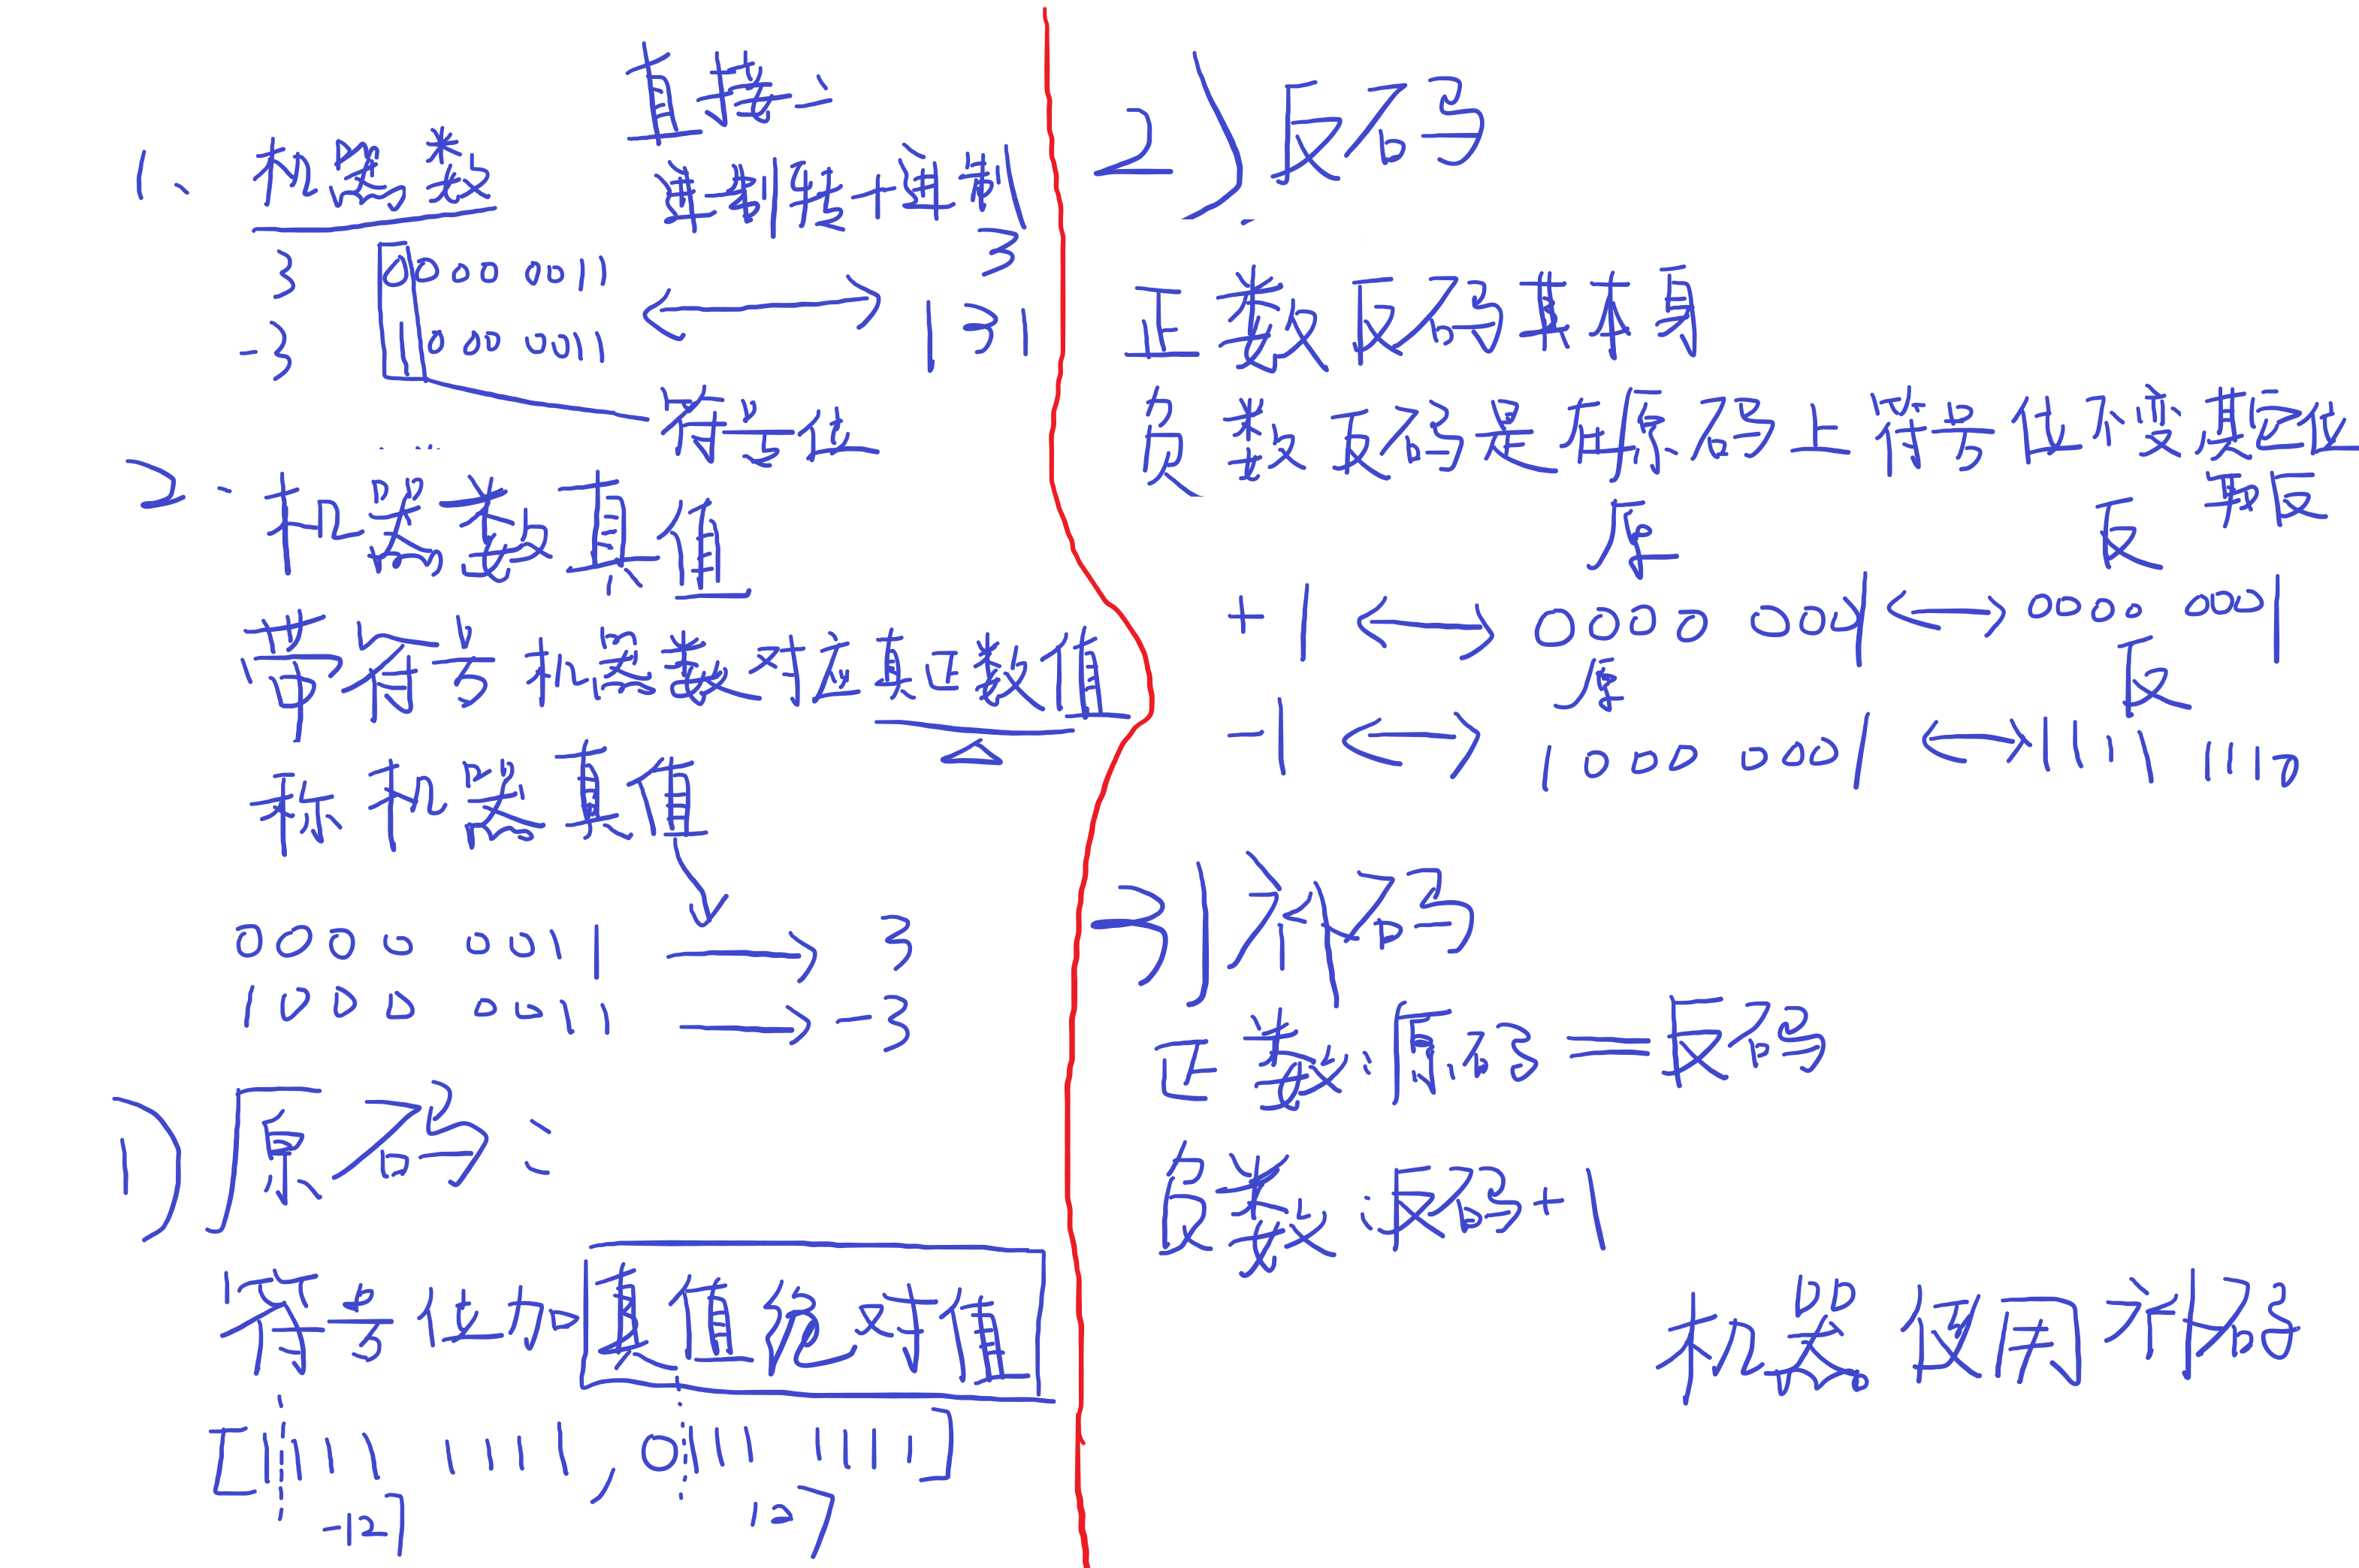 真数:
1、机器数
3 0000 0011
-3 1000 0011
3
131
符号位
2、机器数真值
带符号机器数对应真正数值
称机器真值
0000 0011 → 3
1000 0011 → -3
1) 原码:
符号位加真值绝对值
[1111 1111, 0111 1111]
-127 127
2) 反码
正数反码其本身
负数反码是在原码上符号位不变其它位
取反
原 反
+1 ↔ 0000 0001 ↔ 0000 0001
原 反
-1 ↔ 1000 0001 ↔ 1111 1110
3) 补码
正数:原码=反码
负数:反码+1
机器使用补码